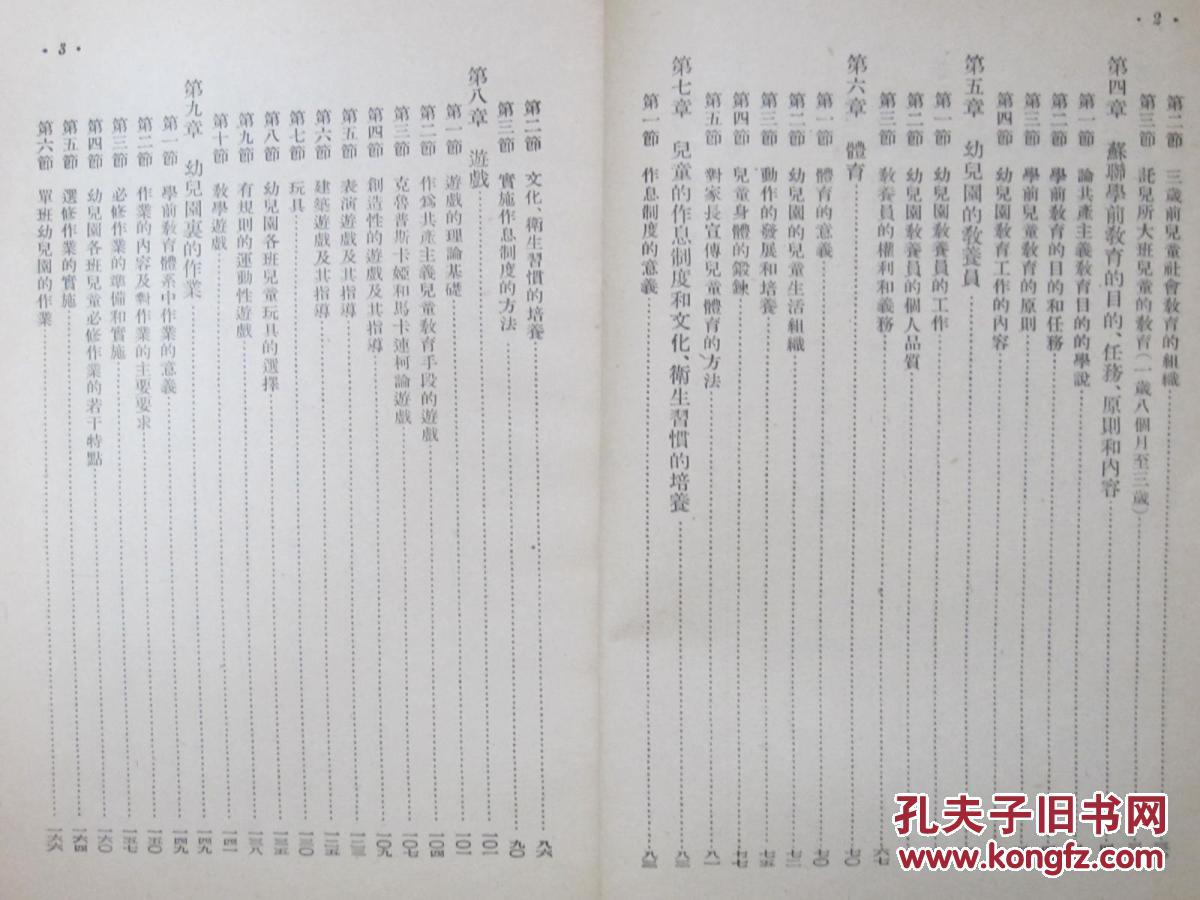 · 2 ·
第二節 三歲前兒童社會敎育的組織
第三節 託兒所大班兒童的敎育(一歲八個月至三歲)
第四章 蘇聯學前敎育的目的、任務、原則和內容
第一節 論共產主義敎育目的的學說
第二節 學前敎育的目的和任務
第三節 學前兒童敎育的原則
第四節 幼兒園敎育工作的內容
第五章 幼兒園的敎養員
第一節 幼兒園敎養員的工作
第二節 幼兒園敎養員的個人品質
第三節 敎養員的權利和義務 六七
第六章 體育 七〇
第一節 體育的意義 七〇
第二節 幼兒園的兒童生活組織 七二
第三節 動作的發展和培養 七五
第四節 兒童身體的鍛鍊 七七
第五節 對家長宣傳兒童體育的方法 八一
第七章 兒童的作息制度和文化、衛生習慣的培養 八三
第一節 作息制度的意義 八三
· 3 ·
第二節 文化、衛生習慣的培養 八六
第三節 實施作息制度的方法 九〇
第八章 遊戲 一〇一
第一節 遊戲的理論基礎 一〇一
第二節 作爲共產主義兒童敎育手段的遊戲 一〇四
第三節 克魯普斯卡婭和馬卡連柯論遊戲 一〇七
第四節 創造性的遊戲及其指導 一〇九
第五節 表演遊戲及其指導 一二三
第六節 建築遊戲及其指導 一二五
第七節 玩具 一三〇
第八節 幼兒園各班兒童玩具的選擇 一三五
第九節 有規則的運動性遊戲 一三八
第十節 敎學遊戲 一四一
第九章 幼兒園裏的作業 一四九
第一節 學前敎育體系中作業的意義 一四九
第二節 作業的內容及對作業的主要要求 一五〇
第三節 必修作業的準備和實施 一五七
第四節 幼兒園各班兒童必修作業的若干特點 一六〇
第五節 選修作業的實施 一六四
第六節 單班幼兒園的作業 一六六
孔夫子旧书网
www.kongfz.com